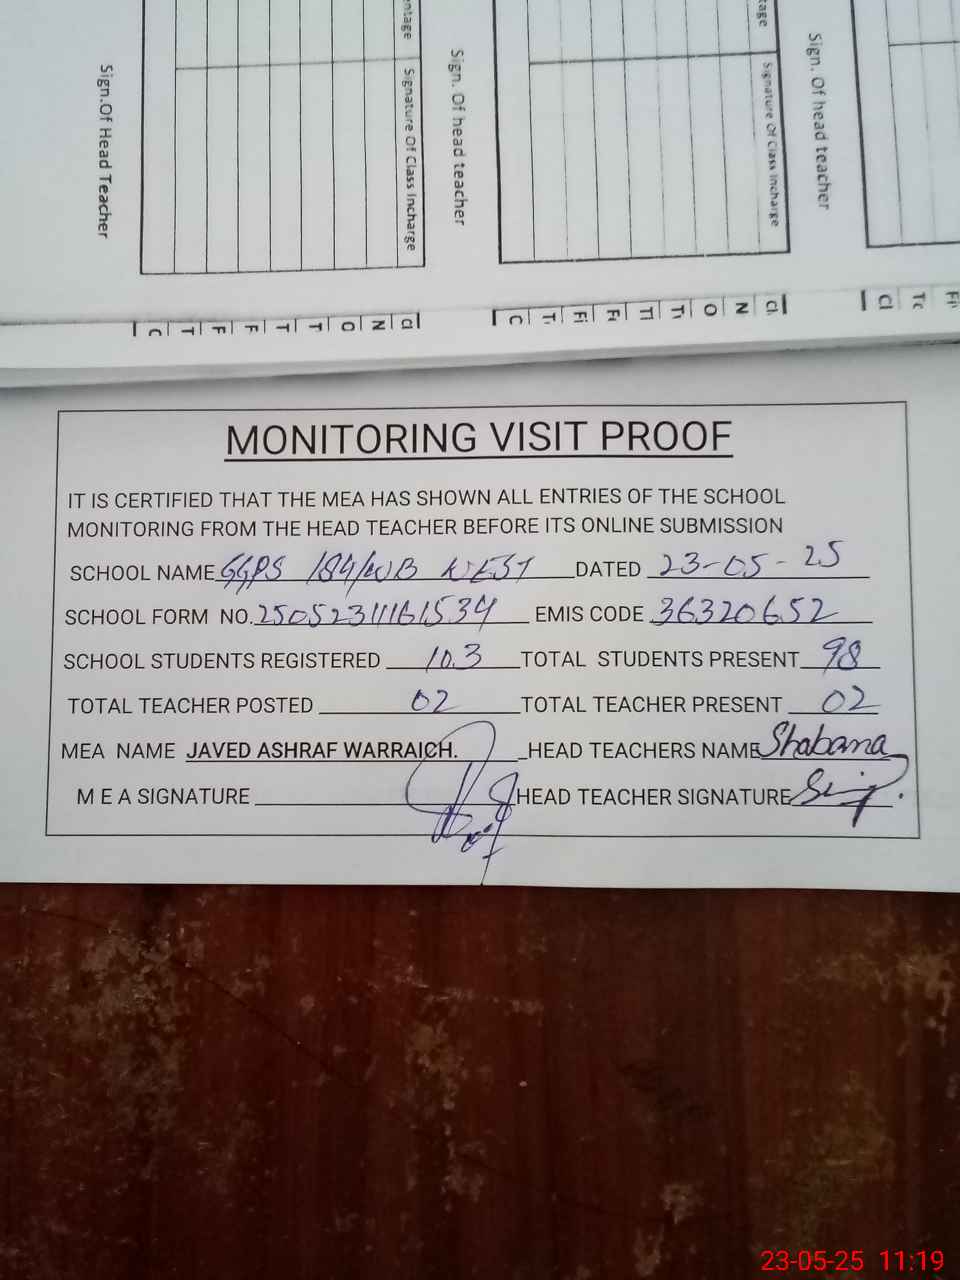 ntage
Signature Of Class Incharge
Sign.Of Head Teacher
tage
Signature Of Class Incharge
Sign. Of head teacher
Sign. Of head teacher
C T F F T T O N Cl
C T Fi Fi Tl Ti O N Cl
Cl Tc Fi
MONITORING VISIT PROOF
IT IS CERTIFIED THAT THE MEA HAS SHOWN ALL ENTRIES OF THE SCHOOL
MONITORING FROM THE HEAD TEACHER BEFORE ITS ONLINE SUBMISSION
SCHOOL NAME GGPS 184/WB WEST DATED 23-05-25
SCHOOL FORM NO. 25052311161534 EMIS CODE 36320652
SCHOOL STUDENTS REGISTERED 103 TOTAL STUDENTS PRESENT 98
TOTAL TEACHER POSTED 02 TOTAL TEACHER PRESENT 02
MEA NAME JAVED ASHRAF WARRAICH. HEAD TEACHERS NAME Shabana
M E A SIGNATURE HEAD TEACHER SIGNATURE
23-05-25 11:19